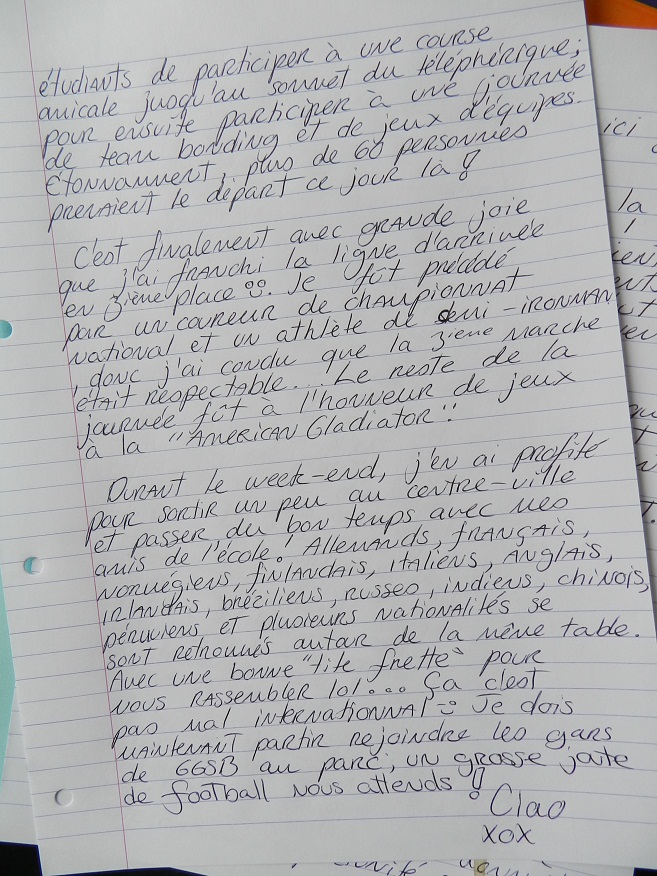 étudiants de participer à une course
amicale jusqu'au sommet du téléphérique;
pour ensuite participer à une journée
de team bonding et de jeux d'équipes.
Étonnamment, plus de 60 personnes
prenaient le départ ce jour là!
C'est finalement avec grande joie
que j'ai franchi la ligne d'arrivée
en 3ième place. Je fût précédé
par un coureur de championnat
national et un athlète de demi-ironman
, donc j'ai conclu que la 3ième marche
était respectable... Le reste de la
journée fût à l'honneur de jeux
à la "American Gladiator"!
Durant le week-end, j'en ai profité
pour sortir un peu au centre-ville
et passer du bon temps avec mes
amis de l'école! Allemands, français,
norvégiens, finlandais, italiens, anglais,
irlandais, bréziliens, russes, indiens, chinois,
péruviens et plusieurs nationalités se
sont retrouvés autour de la même table.
Avec une bonne "tite frette" pour
nous rassembler lol... Ça c'est
pas mal internationnal :) Je dois
maintenant partir rejoindre les gars
de GGSB au parc, un grosse joute
de football nous attends!
Ciao
xox
ici
la